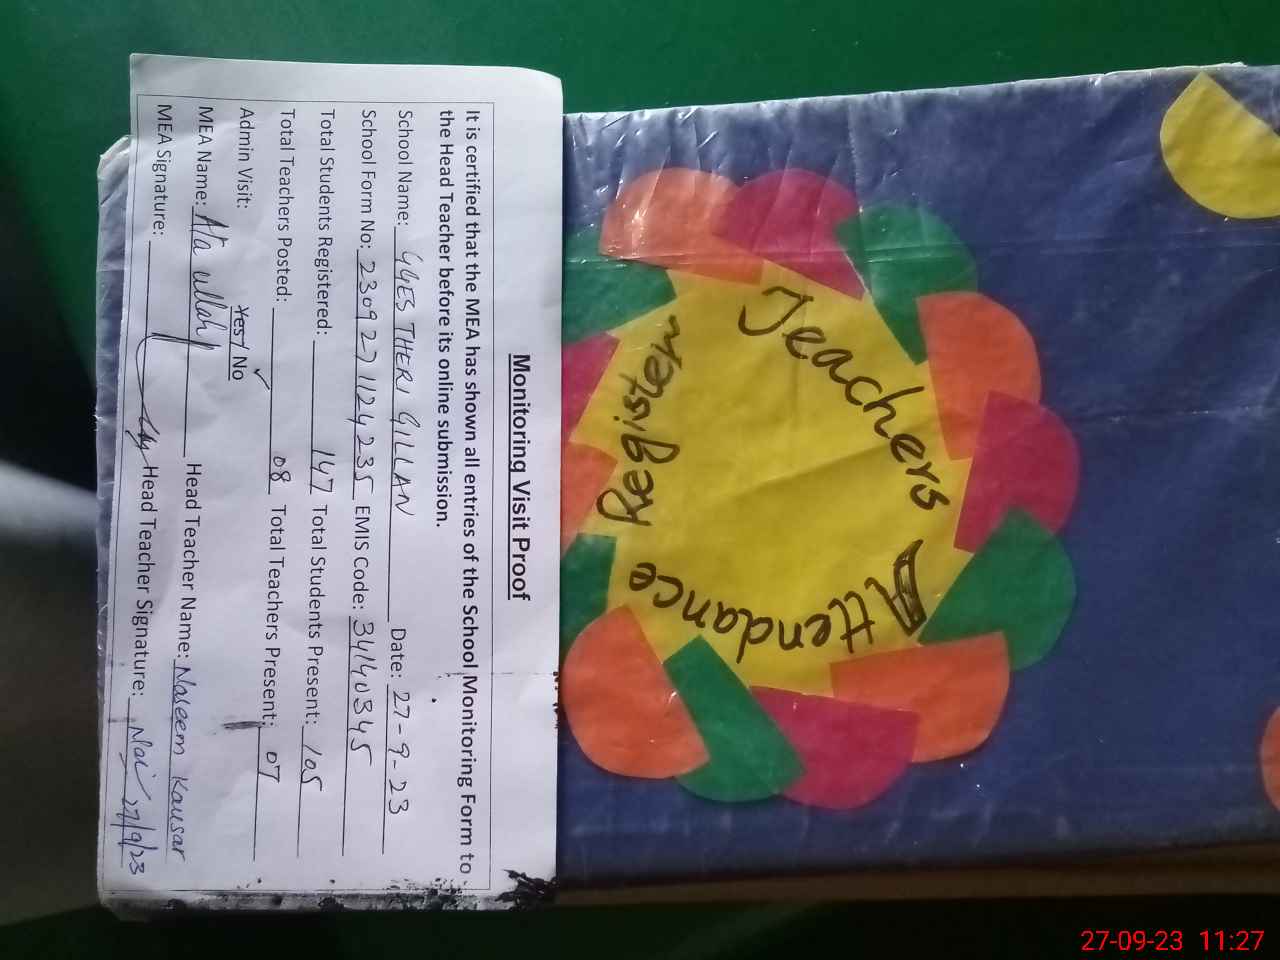 Monitoring Visit Proof
It is certified that the MEA has shown all entries of the School Monitoring Form to
the Head Teacher before its online submission.
School Name: GGES THERI GILLAN Date: 27-9-23
School Form No: 2309271124235 EMIS Code: 34140345
Total Students Registered: 147 Total Students Present: 105
Total Teachers Posted: 08 Total Teachers Present: 07
Admin Visit: Yes / No ✓
MEA Name: Ata ullah Head Teacher Name: Naseem Kausar
MEA Signature: Head Teacher Signature: 27/9/23
Teachers
Attendance
Register
27-09-23 11:27